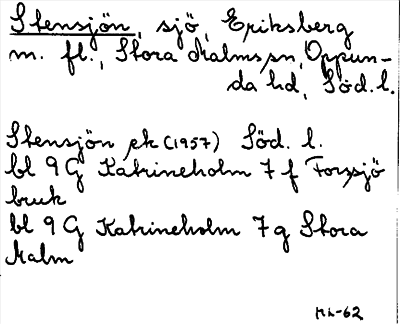 Stensjön, sjö, Eriksberg
m. fl., Stora Malms sn, Oppun-
da hd, Söd. l.
Stensjön ek (1957) Söd. l.
bl 9 G Katrineholm 7 f Forssjö
bruk
bl 9 G Katrineholm 7 g Stora
Malm